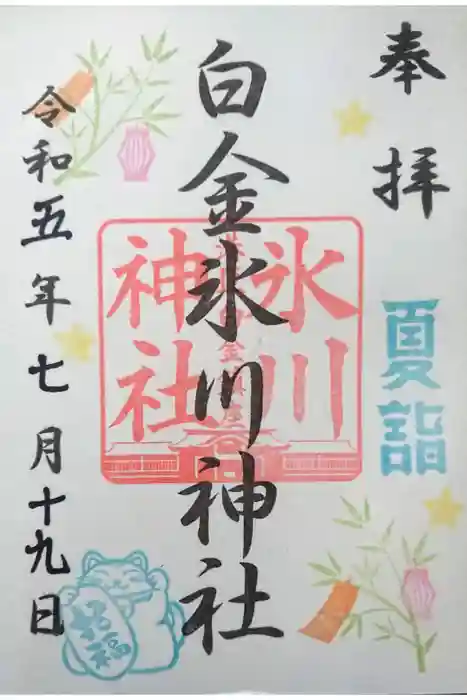 奉拝
夏詣
白金氷川神社
氷川
神社
令和五年七月十九日
招福